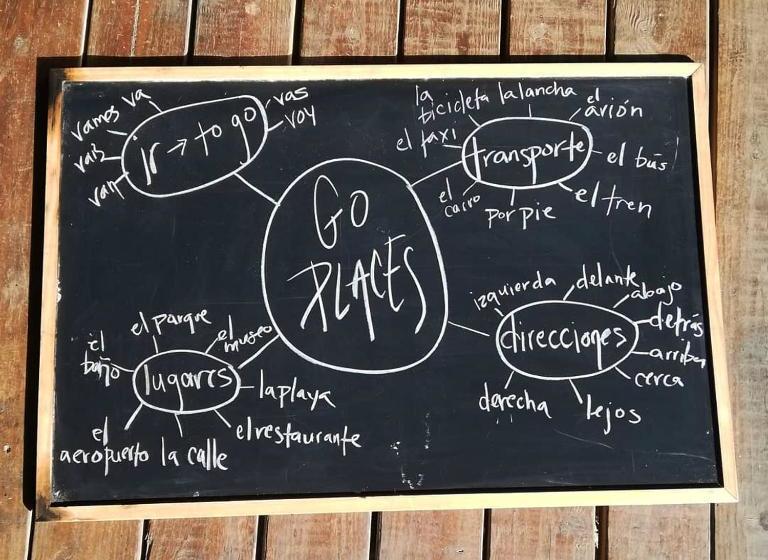 Ir → to go
va
vamos
vais
van
vas
voy
GO
PLACES
transporte
la
bicicleta
la lancha
el
avión
el taxi
el bús
el
carro
por pie
el tren
direcciones
izquierda
delante
abajo
detrás
arriba
cerca
lejos
derecha
lugares
el parque
el
museo
el
baño
la playa
el restaurante
la calle
el
aeropuerto